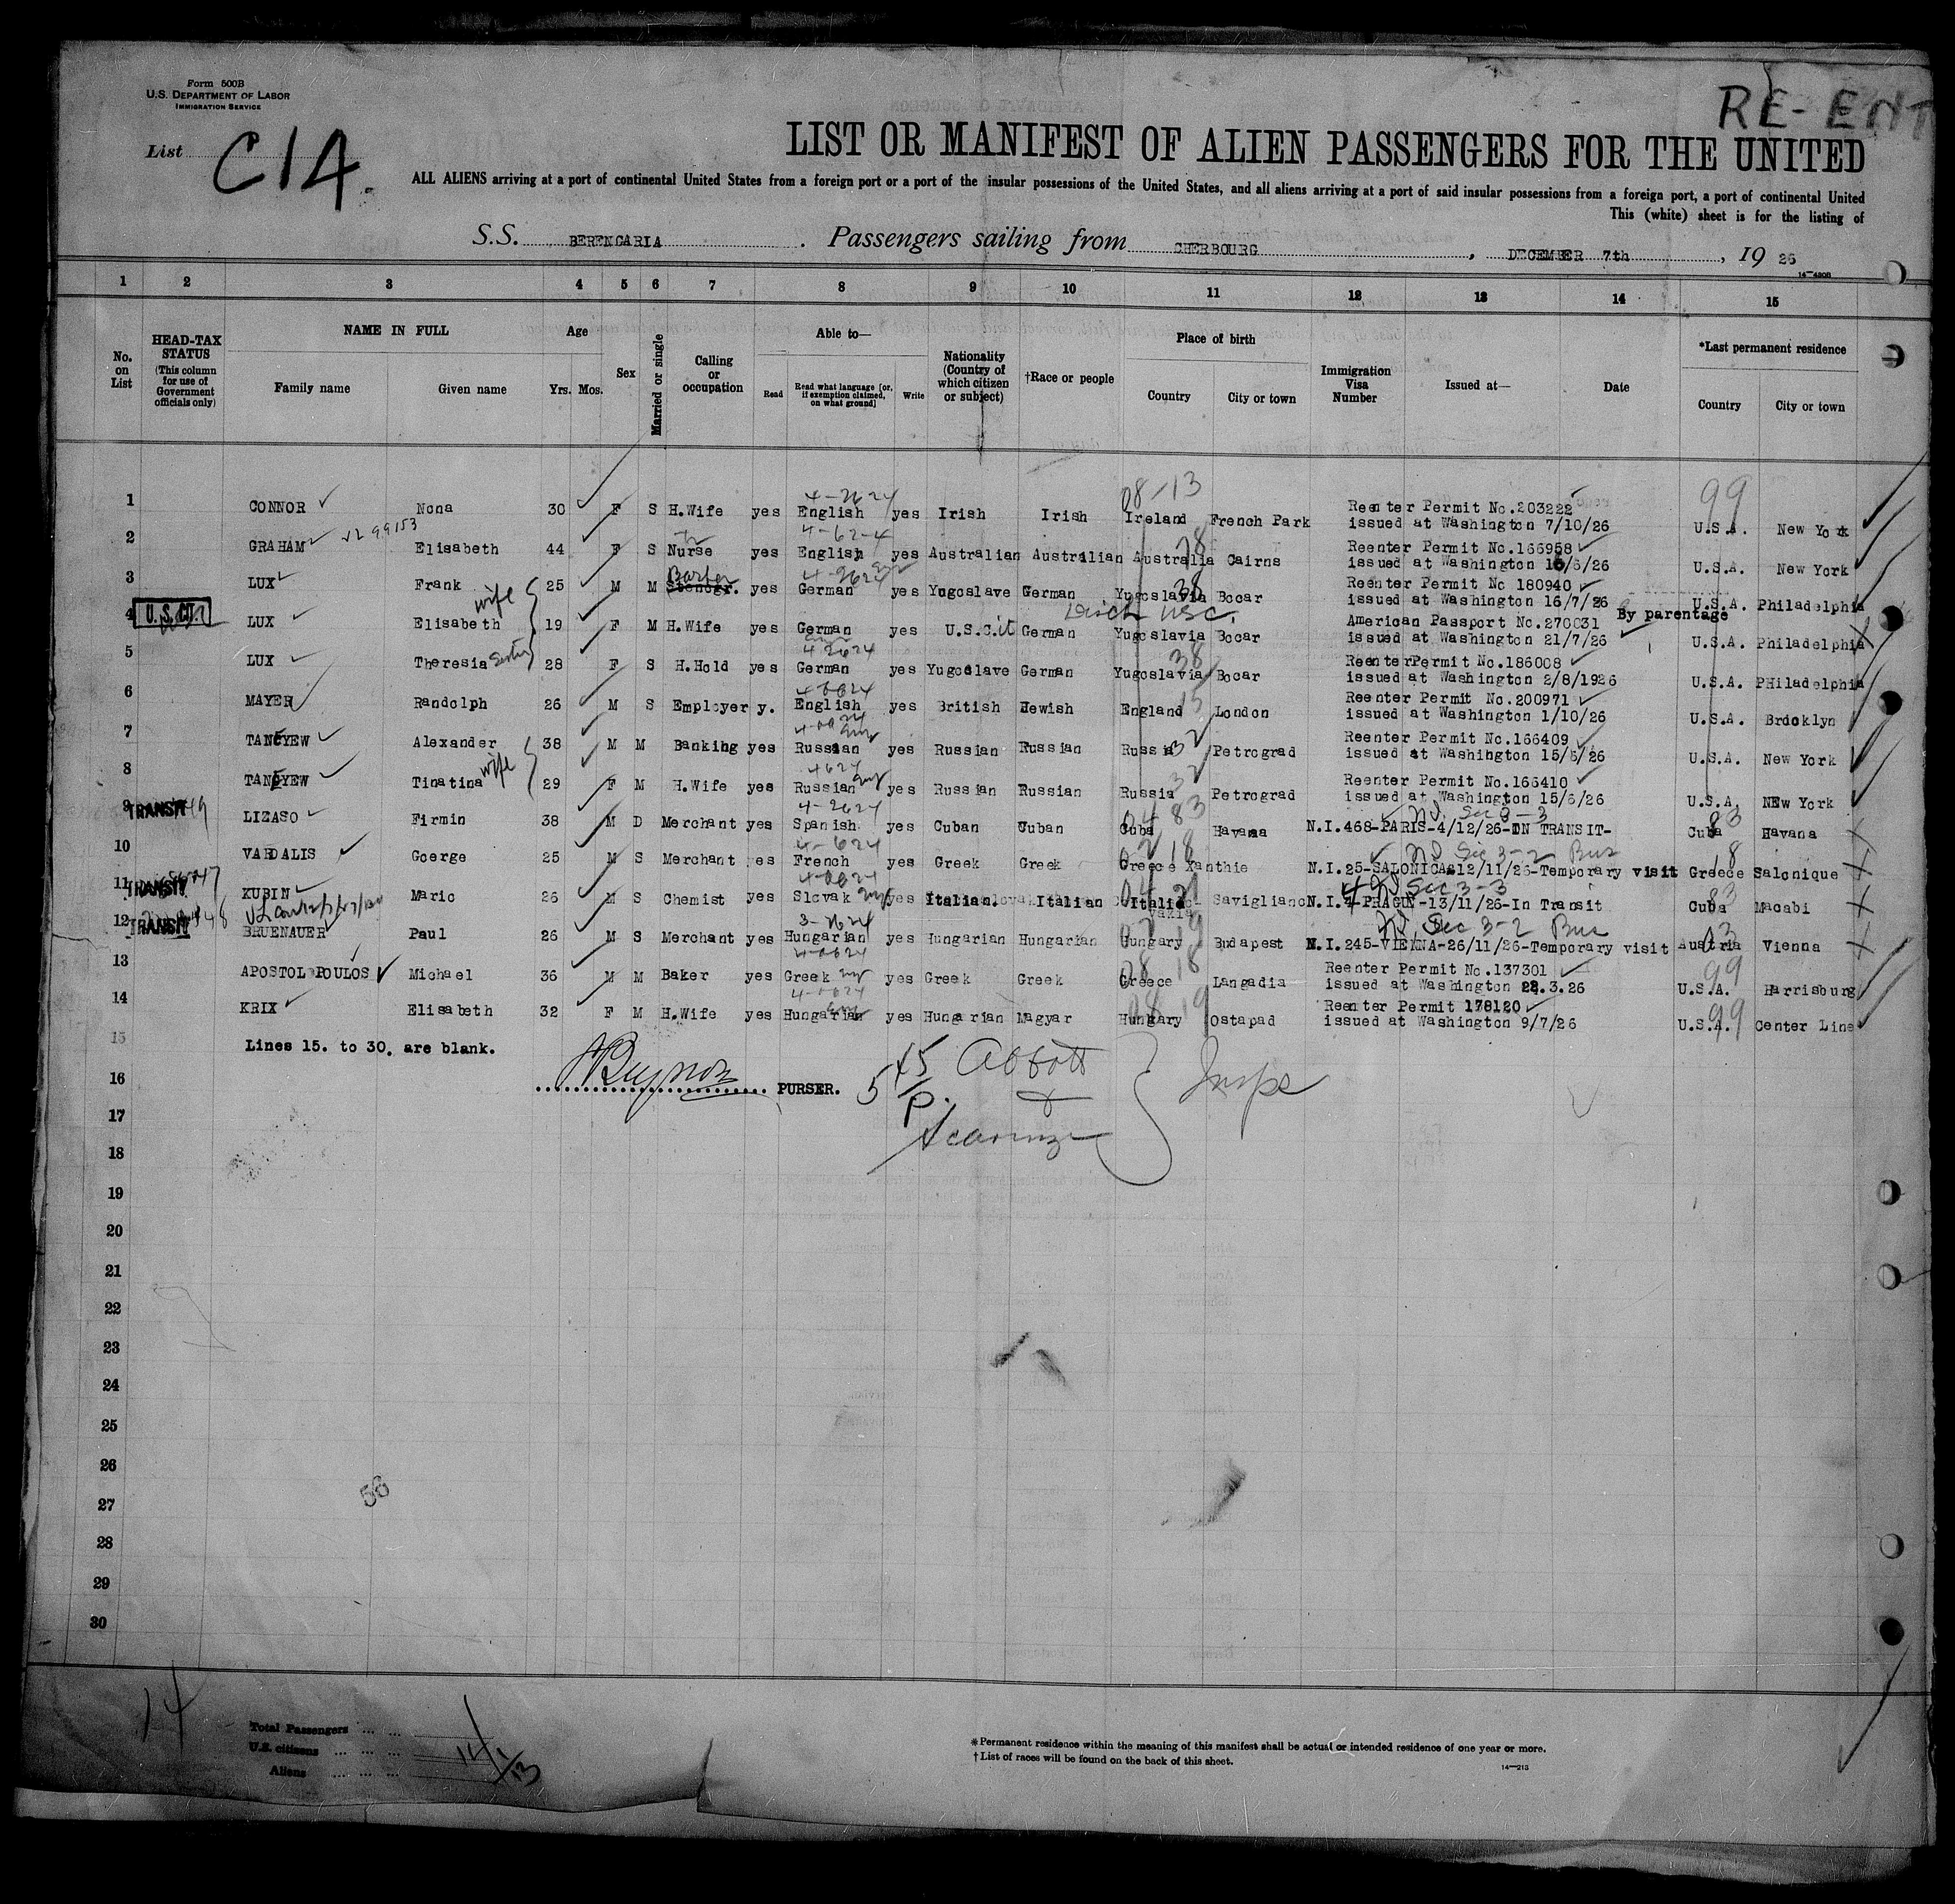 Form 500B
U.S. DEPARTMENT OF LABOR
IMMIGRATION SERVICE
RE-ENT
List C14.
LIST OR MANIFEST OF ALIEN PASSENGERS FOR THE UNITED
ALL ALIENS arriving at a port of continental United States from a foreign port or a port of the insular possessions of the United States, and all aliens arriving at a port of said insular possessions from a foreign port, a port of continental United
This (white) sheet is for the listing of
S.S. BERENGARIA. Passengers sailing from CHERBOURG, DECEMBER 7th, 19 26
1 2 3 4 5 6 7 8 9 10 11 12 13 14 15
No. on List
HEAD-TAX STATUS (This column for use of Government officials only)
NAME IN FULL
Family name Given name
Age
Yrs. Mos.
Sex
Married or single
Calling or occupation
Able to—
Read Read what language [or, if exemption claimed, on what ground] Write
Nationality (Country of which citizen or subject)
†Race or people
Place of birth
Country City or town
Immigration Visa Number
Issued at—
Date
*Last permanent residence
Country City or town
08-13 99
1 CONNOR Nona 30 F S H.Wife yes English yes Irish Irish Ireland French Park Reenter Permit No.203222 issued at Washington 7/10/26 U.S.A. New York
2 GRAHAM Elisabeth 44 F S Nurse yes English yes Australian Australian Australia Cairns Reenter Permit No.166958 issued at Washington 16/6/26 U.S.A. New York
3 LUX Frank 25 M M Stenogr. Barber yes German yes Yugoslave German Yugoslavia Bocar Reenter Permit No 180940 issued at Washington 16/7/26 U.S.A. Philadelphia
4 U.S. CIT. LUX Elisabeth wife 19 F M H.Wife yes German yes U.S.Cit German Yugoslavia Bocar American Passport No.270031 issued at Washington 21/7/26 By parentage U.S.A. Philadelphia
5 LUX Theresia Sister 28 F S H.Hold yes German yes Yugoslave German Yugoslavia Bocar ReenterPermit No.186008 issued at Washington 2/8/1926 U.S.A. PHiladelphia
6 MAYER Randolph 26 M S Employer y. English yes British Jewish England London Reenter Permit No.200971 issued at Washington 1/10/26 U.S.A. Brooklyn
7 TANEYEW Alexander 38 M M Banking yes Russian yes Russian Russian Russia Petrograd Reenter Permit No.166409 issued at Washington 15/6/26 U.S.A. New York
8 TANEYEW Tinatina wife 29 F M H.Wife yes Russian yes Russian Russian Russia Petrograd Reenter Permit No.166410 issued at Washington 15/6/26 U.S.A. NEw York
9 TRANSIT LIZASO Firmin 38 M D Merchant yes Spanish yes Cuban Cuban Cuba Havana N.I.468-PARIS-4/12/26-IN TRANSIT- Cuba Havana
10 VARDALIS Goerge 25 M S Merchant yes French yes Greek Greek Greece Xanthie N.I.25-SALONICA-12/11/26-Temporary visit Greece Salonique
11 TRANSIT KUBIN Maric 26 M S Chemist yes Slovak yes Italian Italian Italie Savigliano N.I.4-PRAGUE-13/11/26-In Transit Cuba Macabi
12 TRANSIT BRUENAUER Paul 26 M S Merchant yes Hungarian yes Hungarian Hungarian Hungary Budapest N.I.245-VIENNA-26/11/26-Temporary visit Austria Vienna
13 APOSTOLOPOULOS Michael 36 M M Baker yes Greek yes Greek Greek Greece Langadia Reenter Permit No.137301 issued at Washington 22.3.26 U.S.A. Harrisburg
14 KRIX Elisabeth 32 F M H.Wife yes Hungarian yes Hungarian Magyar Hungary Ostapad Reenter Permit 178120 issued at Washington 9/7/26 U.S.A. Center Line
15 Lines 15. to 30. are blank.
PURSER.
Abbott
Insps
16
17
18
19
20
21
22
23
24
25
26
27
28
29
30
58
14
Total Passengers ... ... 14
U.S. citizens ... ... ... 1
Aliens ... ... ... 13
*Permanent residence within the meaning of this manifest shall be actual or intended residence of one year or more.
†List of races will be found on the back of this sheet.
14—213